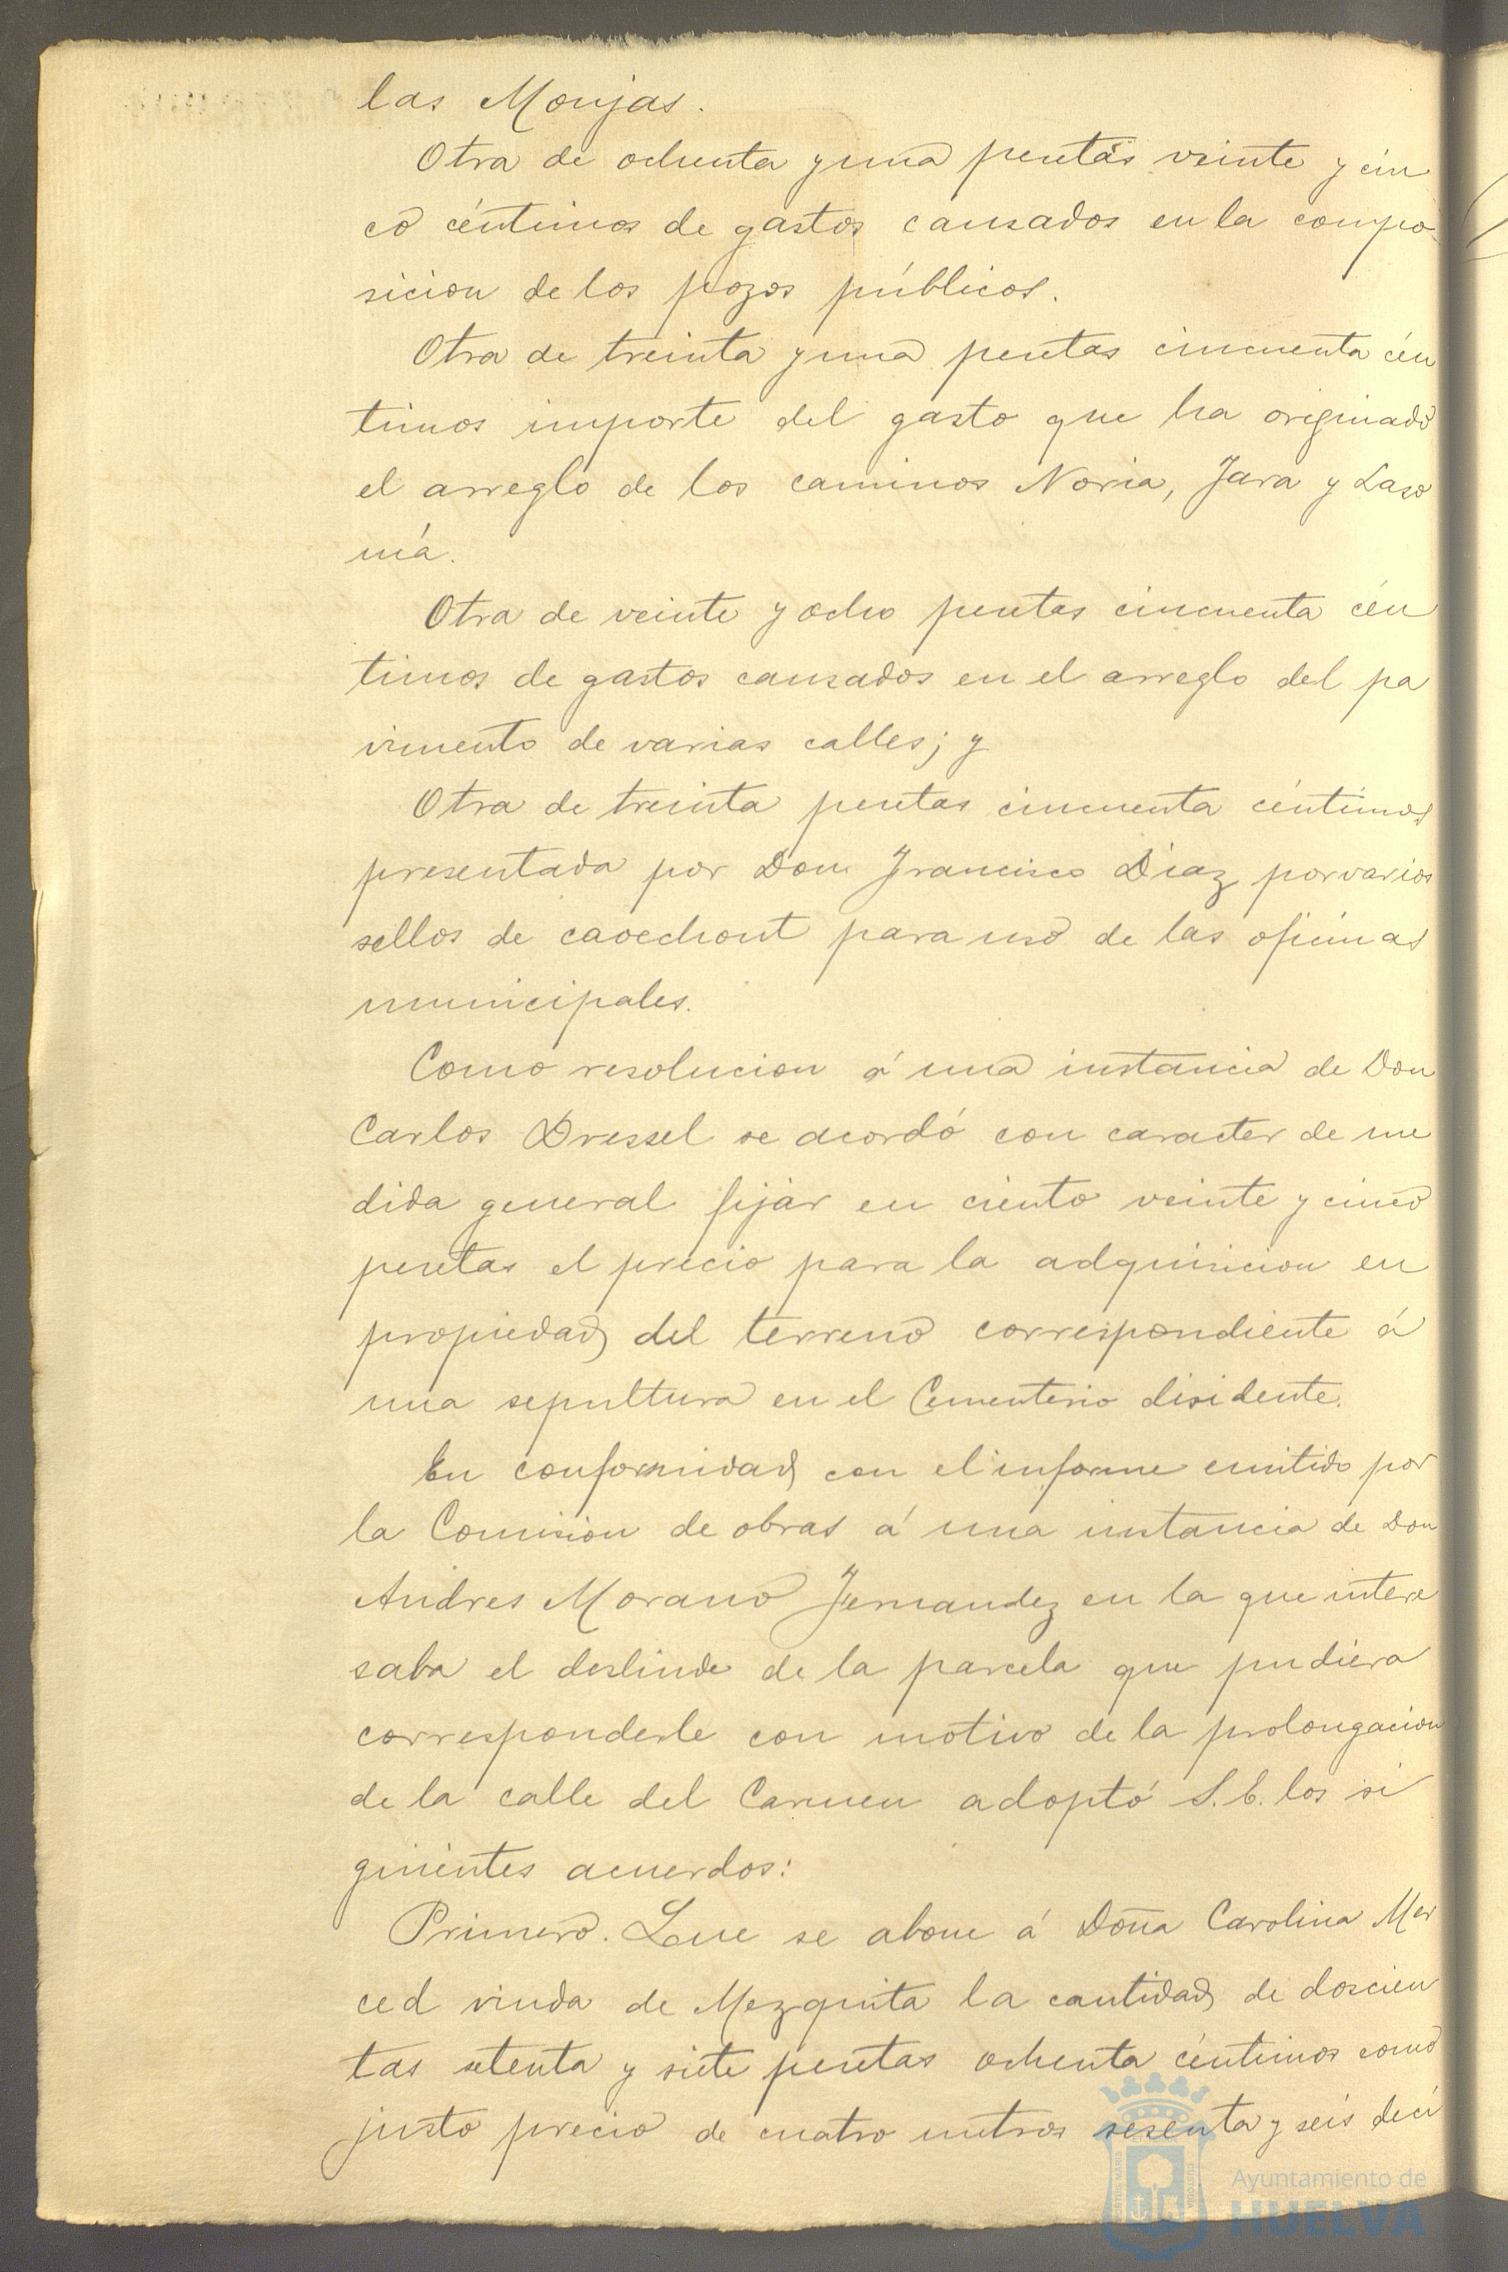 las Monjas.
Otra de ochenta y una pesetas veinte y cin
co céntimos de gastos causados en la compo
sicion de los pozos públicos.
Otra de treinta y una pesetas cincuenta cén
timos importe del gasto que ha originado
el arreglo de los caminos Noria, Jara y Laso
má.
Otra de veinte y ocho pesetas cincuenta cén
timos de gastos causados en el arreglo del pa
vimento de varias calles; y
Otra de treinta pesetas cincuenta céntimos
presentada por Don Francisco Diaz por varios
sellos de caoechout para uso de las oficinas
municipales.
Como resolucion á una instancia de Don
Carlos Dressel se acordó con caracter de me
dida general fijar en ciento veinte y cinco
pesetas el precio para la adquisicion en
propiedad del terreno correspondiente á
una sepultura en el Cementerio disidente.
En conformidad con el informe emitido por
la Comision de obras á una instancia de Don
Andres Morano Fernandez en la que intere
saba el deslinde de la parcela que pudiera
corresponderle con motivo de la prolongacion
de la calle del Carmen adoptó S.E. los si
guientes acuerdos:
Primero. Que se abone á Doña Carolina Mer
ced viuda de Mezquita la cantidad de doscien
tas setenta y siete pesetas ochenta céntimos como
justo precio de cuatro metros sesenta y seis deci
Ayuntamiento de
HUELVA